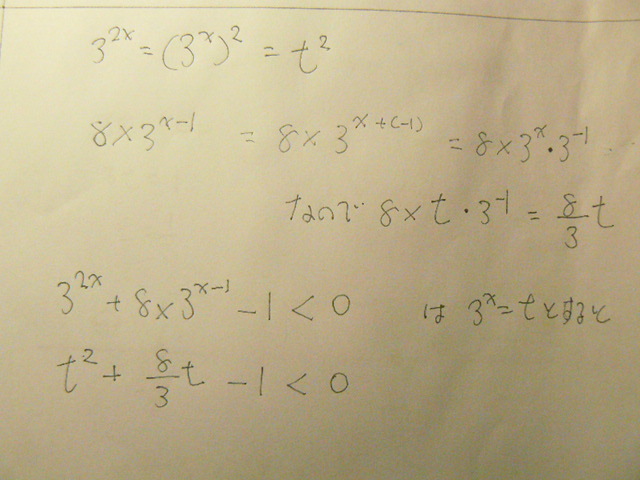 3^{2x} = (3^x)^2 = t^2
8×3^{x-1} = 8×3^{x+(-1)} = 8×3^x・3^{-1}
なので 8×t・3^{-1} = \frac{8}{3}t
3^{2x} + 8×3^{x-1} - 1 < 0 は 3^x = tとすると
t^2 + \frac{8}{3}t - 1 < 0